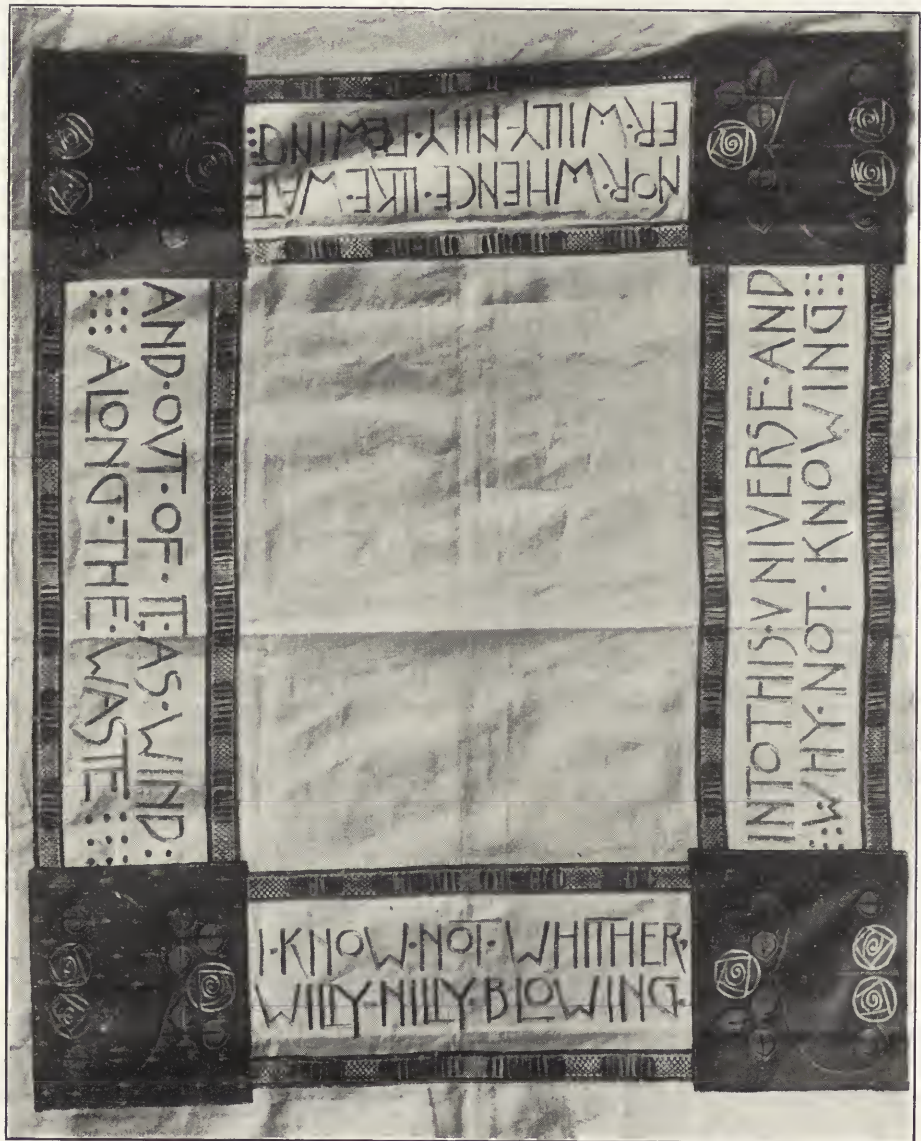 INTO THIS·VNIVERSE·AND
:·WHY·NOT·KNOWING:·:
NOR·WHENCE·LIKE·WAT
ER·WILLY·NILLY·FLOWING:
AND·OVT·OF·IT,AS·WIND:
ALONG·THE·WASTE
I·KNOW·NOT·WHITHER·
WILLY·NILLY·BLOWING·